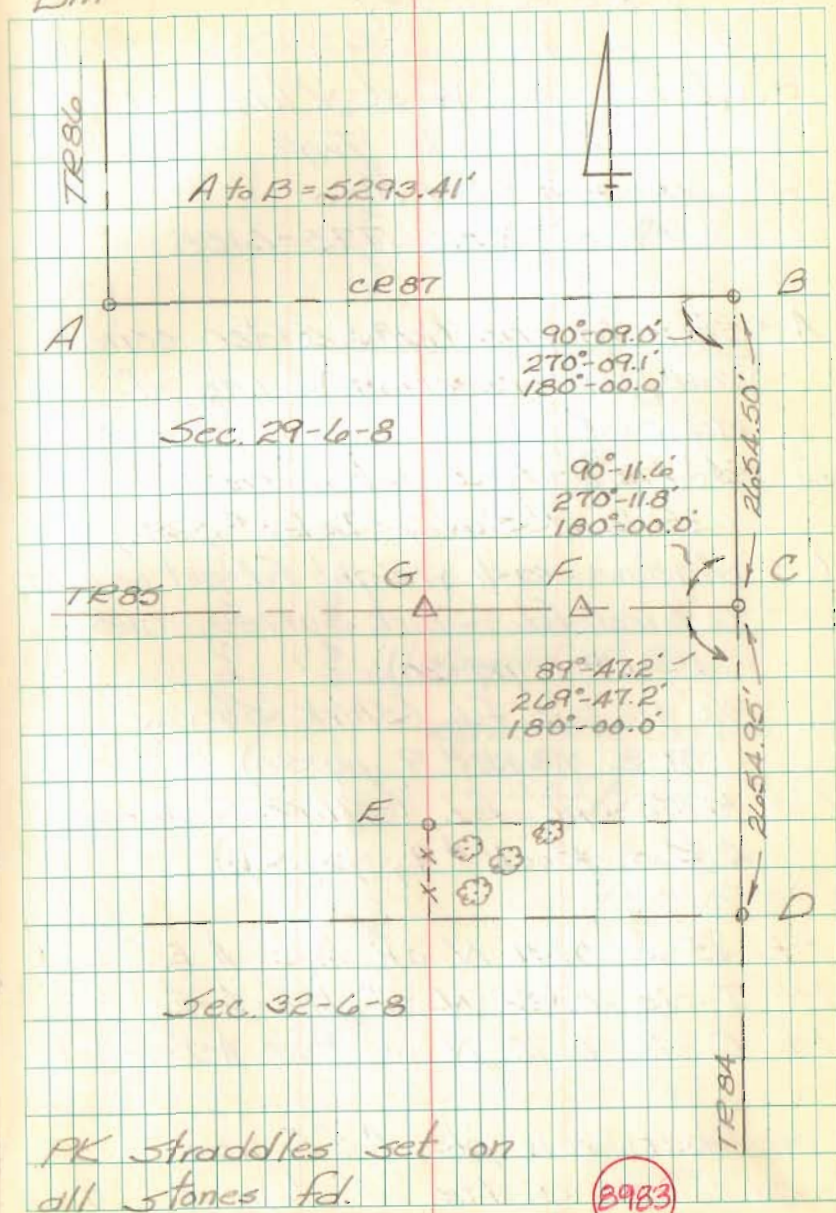 TR86
A to B = 5293.41'
CR87
A
B
90°-09.0'
270°-09.1'
180°-00.0'
2654.50'
Sec. 29-6-8
90°-11.6'
270°-11.8'
180°-00.0'
TR85
G
F
C
89°-47.2'
269°-47.2'
180°-00.0'
2654.95'
E
D
Sec. 32-6-8
TR84
PK straddles set on
all stones fd.
8983